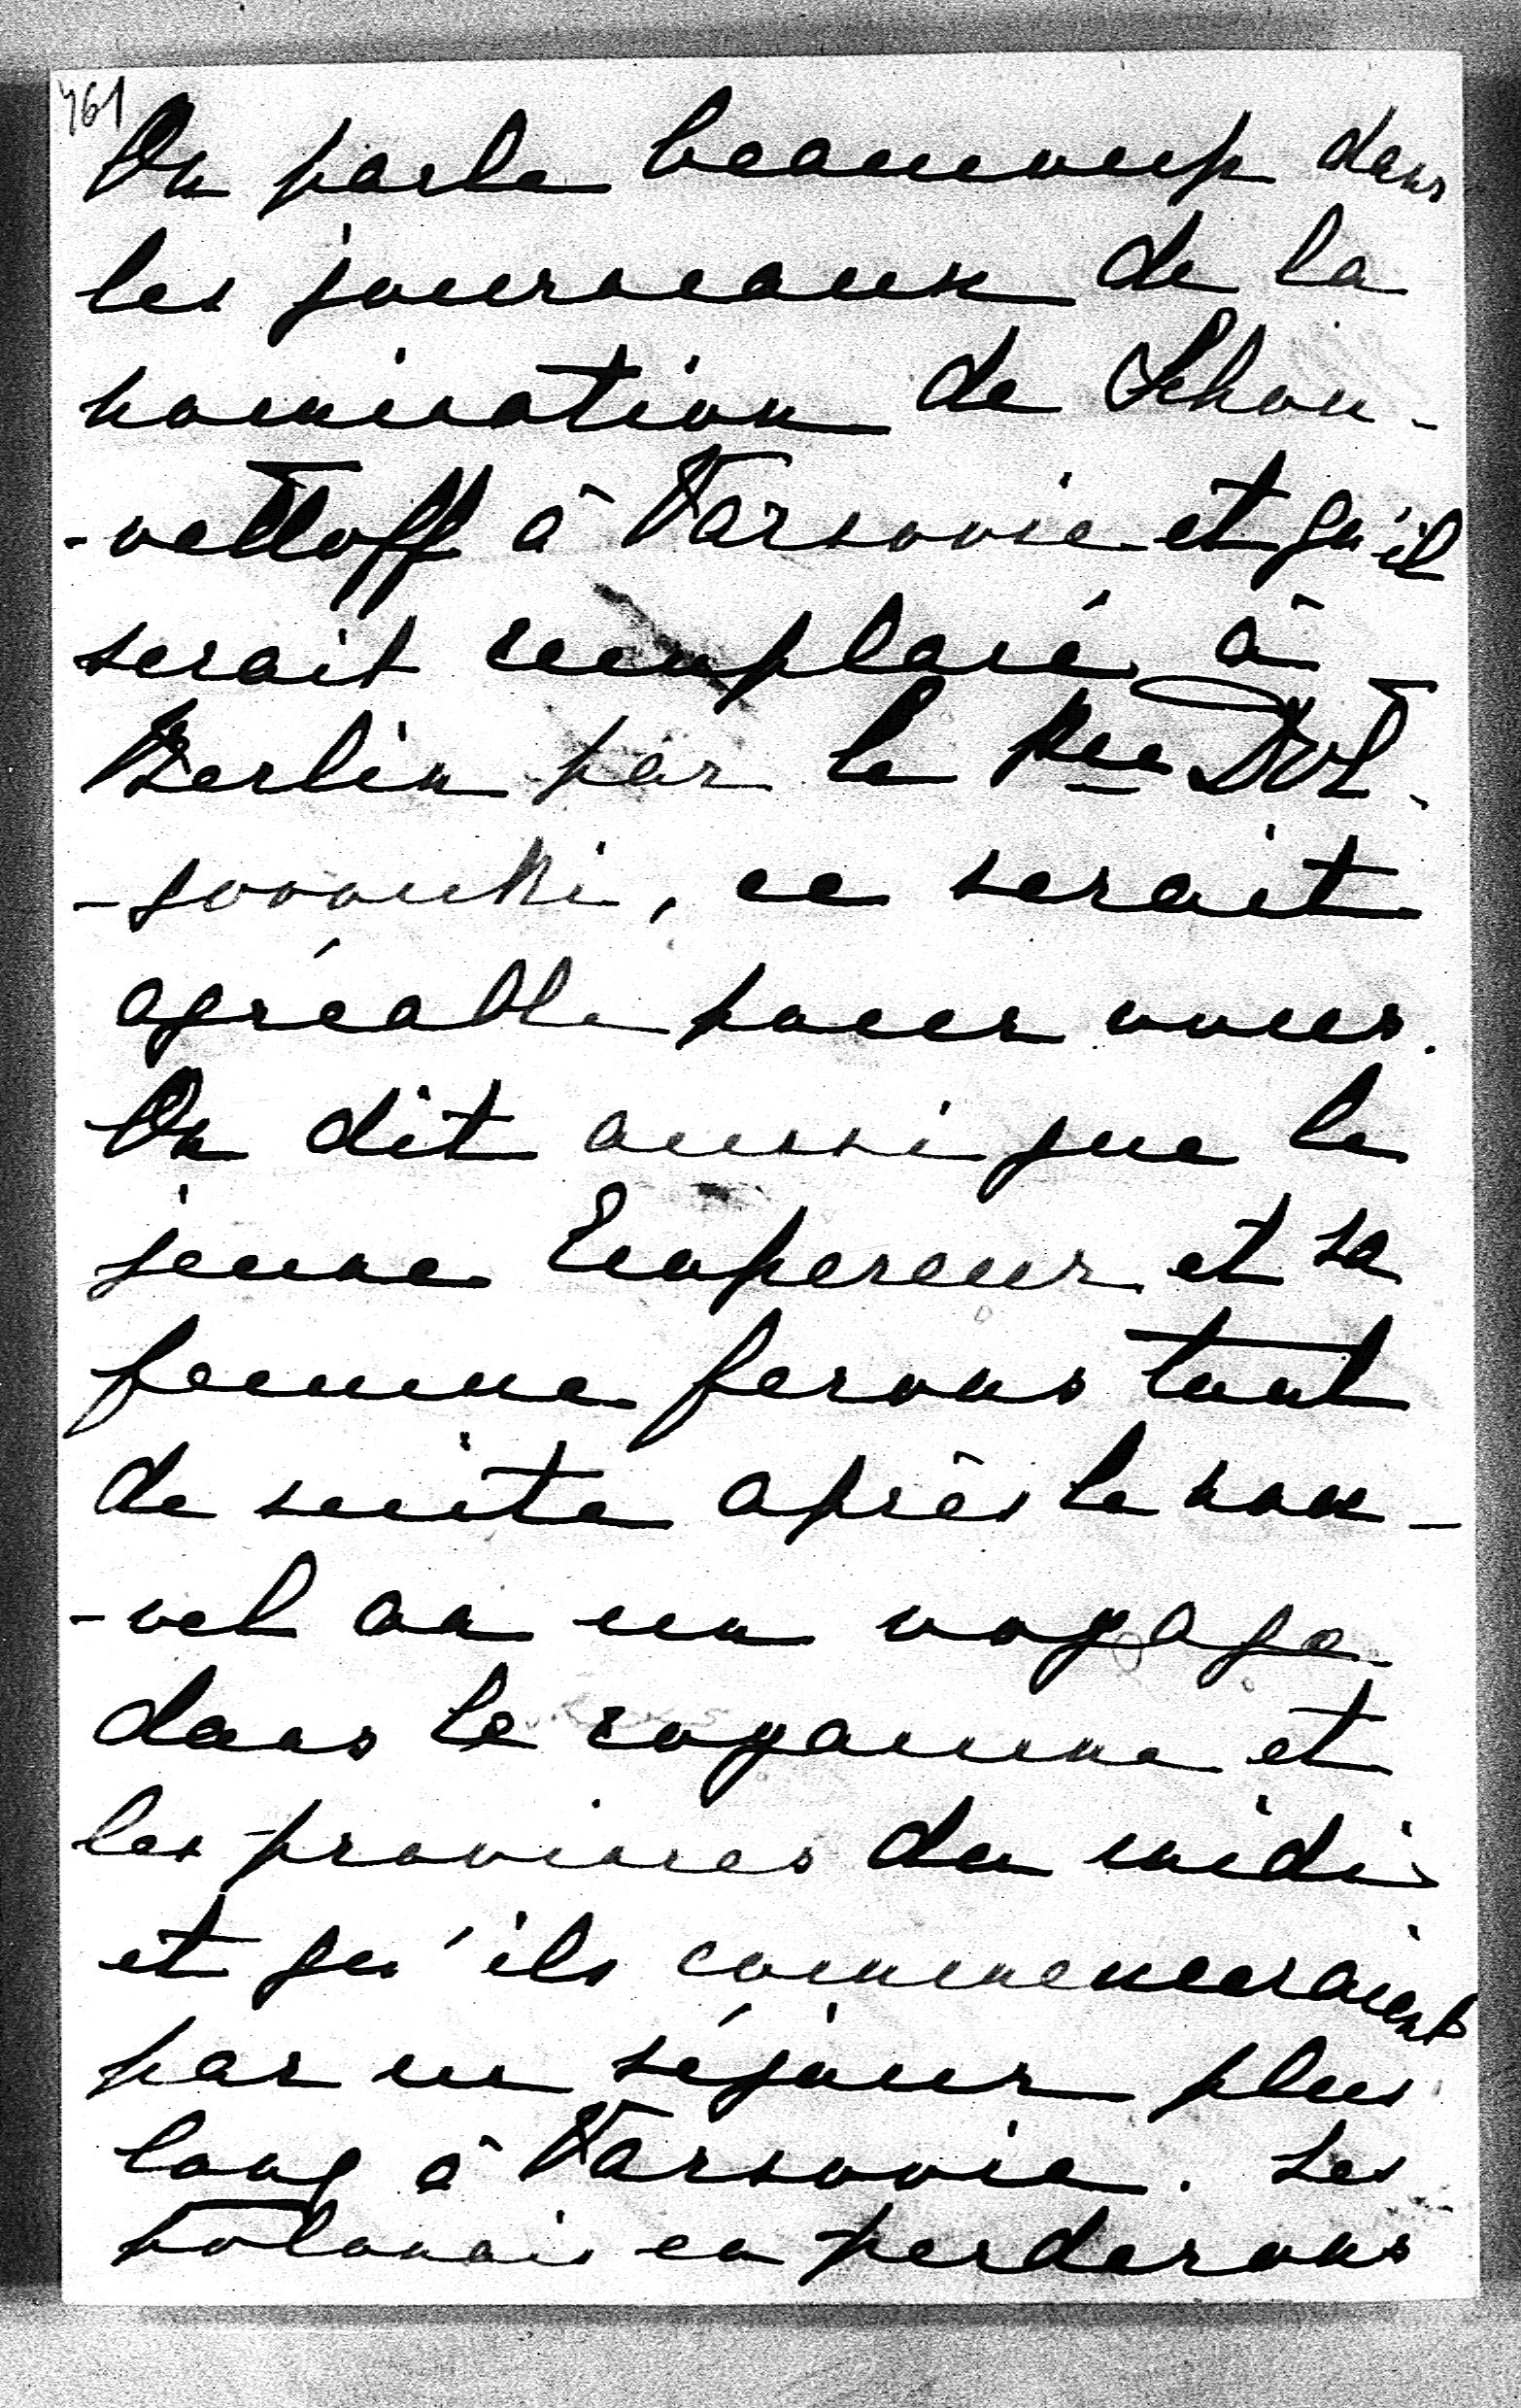 461
On parle beaucoup dans
les journeaux de la
nomination de Schou-
-valloff à Varsovie et qu'il
serait remplacé à
Berlin par le Pce Dol-
-gorouki, ce serait
agréable pour vous.
On dit aussi que le
jeune Empereur et sa
femme ferons tout
de suite après le nou-
-vel an un voyage
dans le royaume et
les provinces du midi
et qu'ils commenceraient
par un séjour plus
long à Varsovie. Les
polonais en perderons